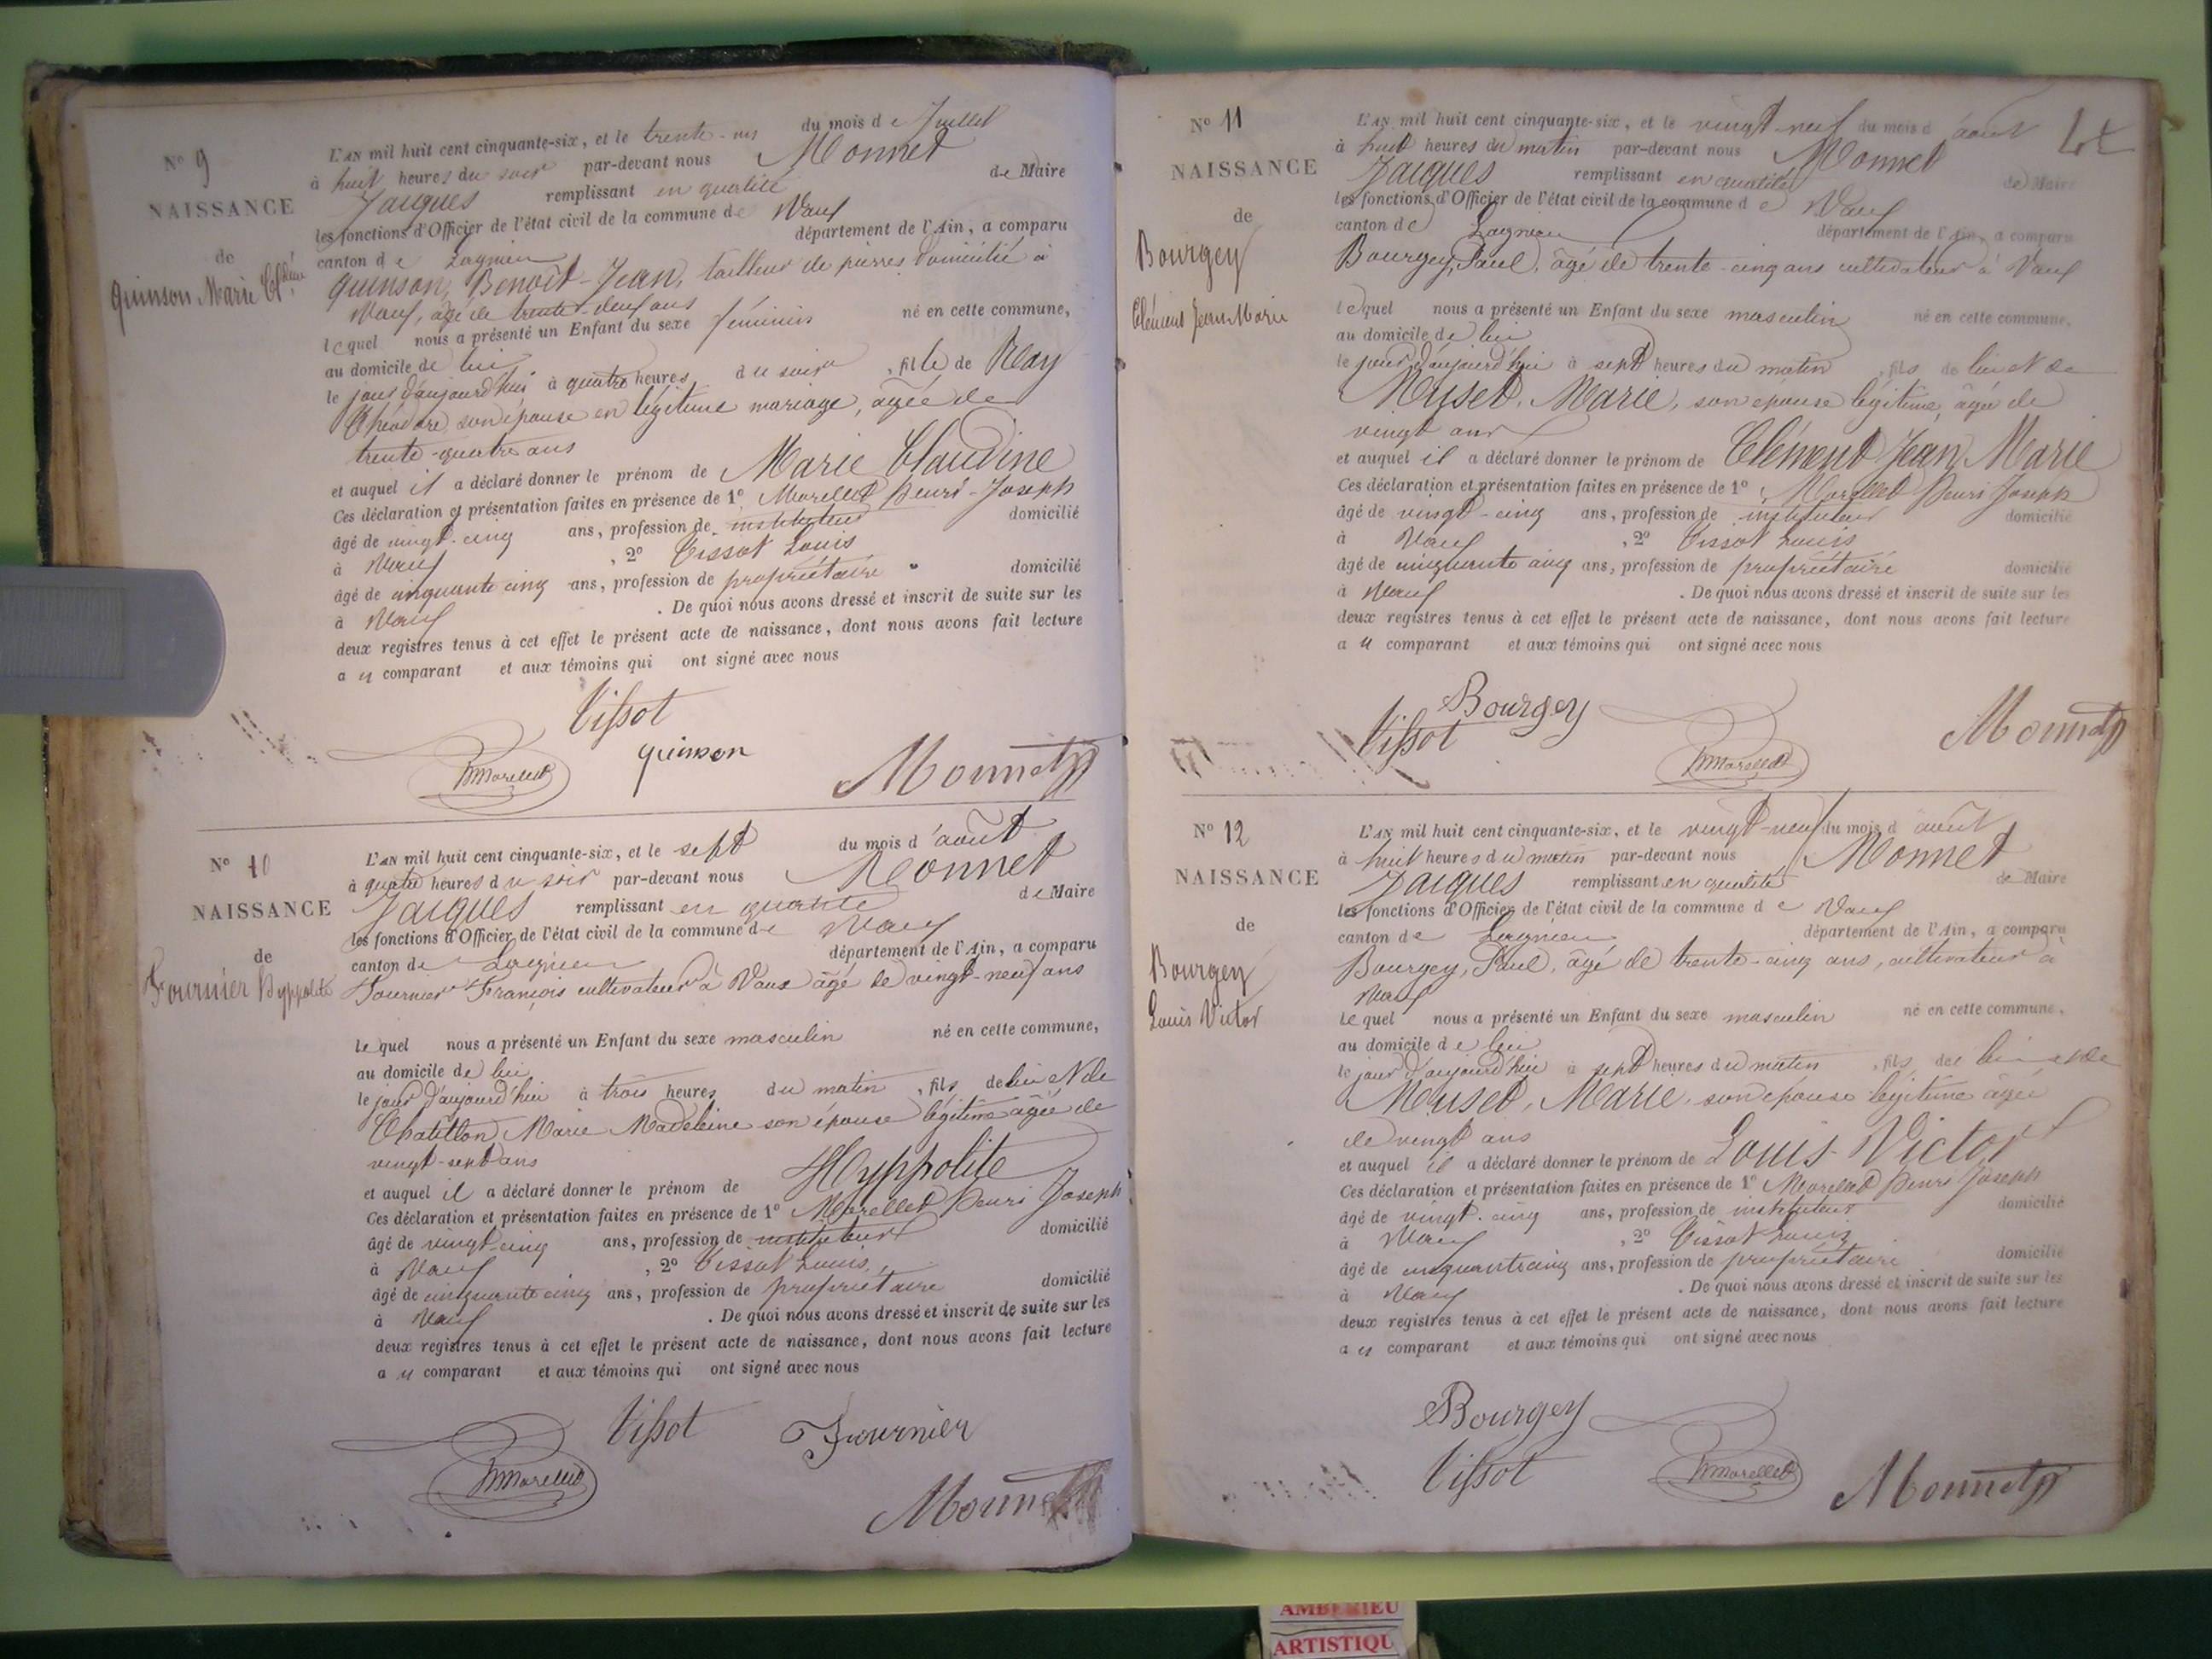 N° 9
NAISSANCE
de
Quinson Marie Cl.dine
L'AN mil huit cent cinquante-six, et le trente-un du mois de Juillet
à huit heures du soir par-devant nous Monnet
Jacques remplissant en qualité de Maire
les fonctions d'Officier de l'état civil de la commune de Vaux
canton de Lagnieu département de l'Ain, a comparu
Quinson, Benoît-Jean, tailleur de pierres domicilié à
Vaux, âgé de trente-deux ans
lequel nous a présenté un Enfant du sexe féminin né en cette commune,
au domicile de lui
le jour d'aujourd'hui à quatre heures du soir, fille de Reay
Théodore son épouse en légitime mariage, agée de
trente-quatre ans
et auquel il a déclaré donner le prénom de Marie Claudine
Ces déclaration et présentation faites en présence de 1° Morellet Henri-Joseph
âgé de vingt-cinq ans, profession de instituteur domicilié
à Vaux, 2° Tissot Louis
âgé de cinquante cinq ans, profession de propriétaire domicilié
à Vaux. De quoi nous avons dressé et inscrit de suite sur les
deux registres tenus à cet effet le présent acte de naissance, dont nous avons fait lecture
au comparant et aux témoins qui ont signé avec nous
Tissot
quinson
hMorellet
Monnet
N° 10
NAISSANCE
de
Fournier Hyppolite
L'AN mil huit cent cinquante-six, et le sept du mois d'août
à quatre heures du soir par-devant nous Monnet
Jacques remplissant en qualité de Maire
les fonctions d'Officier de l'état civil de la commune de Vaux
canton de Lagnieu département de l'Ain, a comparu
Fournier François cultivateur à Vaux âgé de vingt-neuf ans
lequel nous a présenté un Enfant du sexe masculin né en cette commune,
au domicile de lui
le jour d'aujourd'hui à trois heures du matin, fils de lui et de
Chatillon Marie Madeleine son épouse légitime agée de
vingt-sept ans
et auquel il a déclaré donner le prénom de Hyppolite
Ces déclaration et présentation faites en présence de 1° Morellet Henri Joseph
âgé de vingt-cinq ans, profession de instituteur domicilié
à Vaux, 2° Tissot Louis,
âgé de cinquante cinq ans, profession de propriétaire domicilié
à Vaux. De quoi nous avons dressé et inscrit de suite sur les
deux registres tenus à cet effet le présent acte de naissance, dont nous avons fait lecture
au comparant et aux témoins qui ont signé avec nous
Tissot Fournier
hMorellet
Monnet
N° 11
NAISSANCE
de
Bourgey
Clément Jean Marie
L'AN mil huit cent cinquante-six, et le vingt-neuf du mois d'août
à huit heures du matin par-devant nous Monnet
Jacques remplissant en qualité de Maire
les fonctions d'Officier de l'état civil de la commune de Vaux
canton de Lagnieu département de l'Ain, a comparu
Bourgey, Paul, âgé de trente-cinq ans cultivateur à Vaux
lequel nous a présenté un Enfant du sexe masculin né en cette commune,
au domicile de lui
le jour d'aujourd'hui à sept heures du matin, fils de lui et de
Muset, Marie, son épouse légitime, âgée de
vingt ans
et auquel il a déclaré donner le prénom de Clément Jean Marie
Ces déclaration et présentation faites en présence de 1° Morellet Henri Joseph
âgé de vingt-cinq ans, profession de instituteur domicilié
à Vaux, 2° Tissot Louis
âgé de cinquante cinq ans, profession de propriétaire domicilié
à Vaux. De quoi nous avons dressé et inscrit de suite sur les
deux registres tenus à cet effet le présent acte de naissance, dont nous avons fait lecture
au comparant et aux témoins qui ont signé avec nous
Bourgey
Tissot
hMorellet
Monnet
N° 12
NAISSANCE
de
Bourgey
Louis Victor
L'AN mil huit cent cinquante-six, et le vingt-neuf du mois d'août
à huit heures du matin par-devant nous Monnet
Jacques remplissant en qualité de Maire
les fonctions d'Officier de l'état civil de la commune de Vaux
canton de Lagnieu département de l'Ain, a comparu
Bourgey, Paul, âgé de trente-cinq ans, cultivateur à
Vaux
lequel nous a présenté un Enfant du sexe masculin né en cette commune,
au domicile de lui
le jour d'aujourd'hui à sept heures du matin, fils de lui et de
Muset, Marie, son épouse légitime agée
de vingt ans
et auquel il a déclaré donner le prénom de Louis-Victor
Ces déclaration et présentation faites en présence de 1° Morellet Henri Joseph
âgé de vingt-cinq ans, profession de instituteur domicilié
à Vaux, 2° Tissot Louis
âgé de cinquante cinq ans, profession de propriétaire domicilié
à Vaux. De quoi nous avons dressé et inscrit de suite sur les
deux registres tenus à cet effet le présent acte de naissance, dont nous avons fait lecture
au comparant et aux témoins qui ont signé avec nous
Bourgey
Tissot
hMorellet
Monnet
AMBERIEU
ARTISTIQU